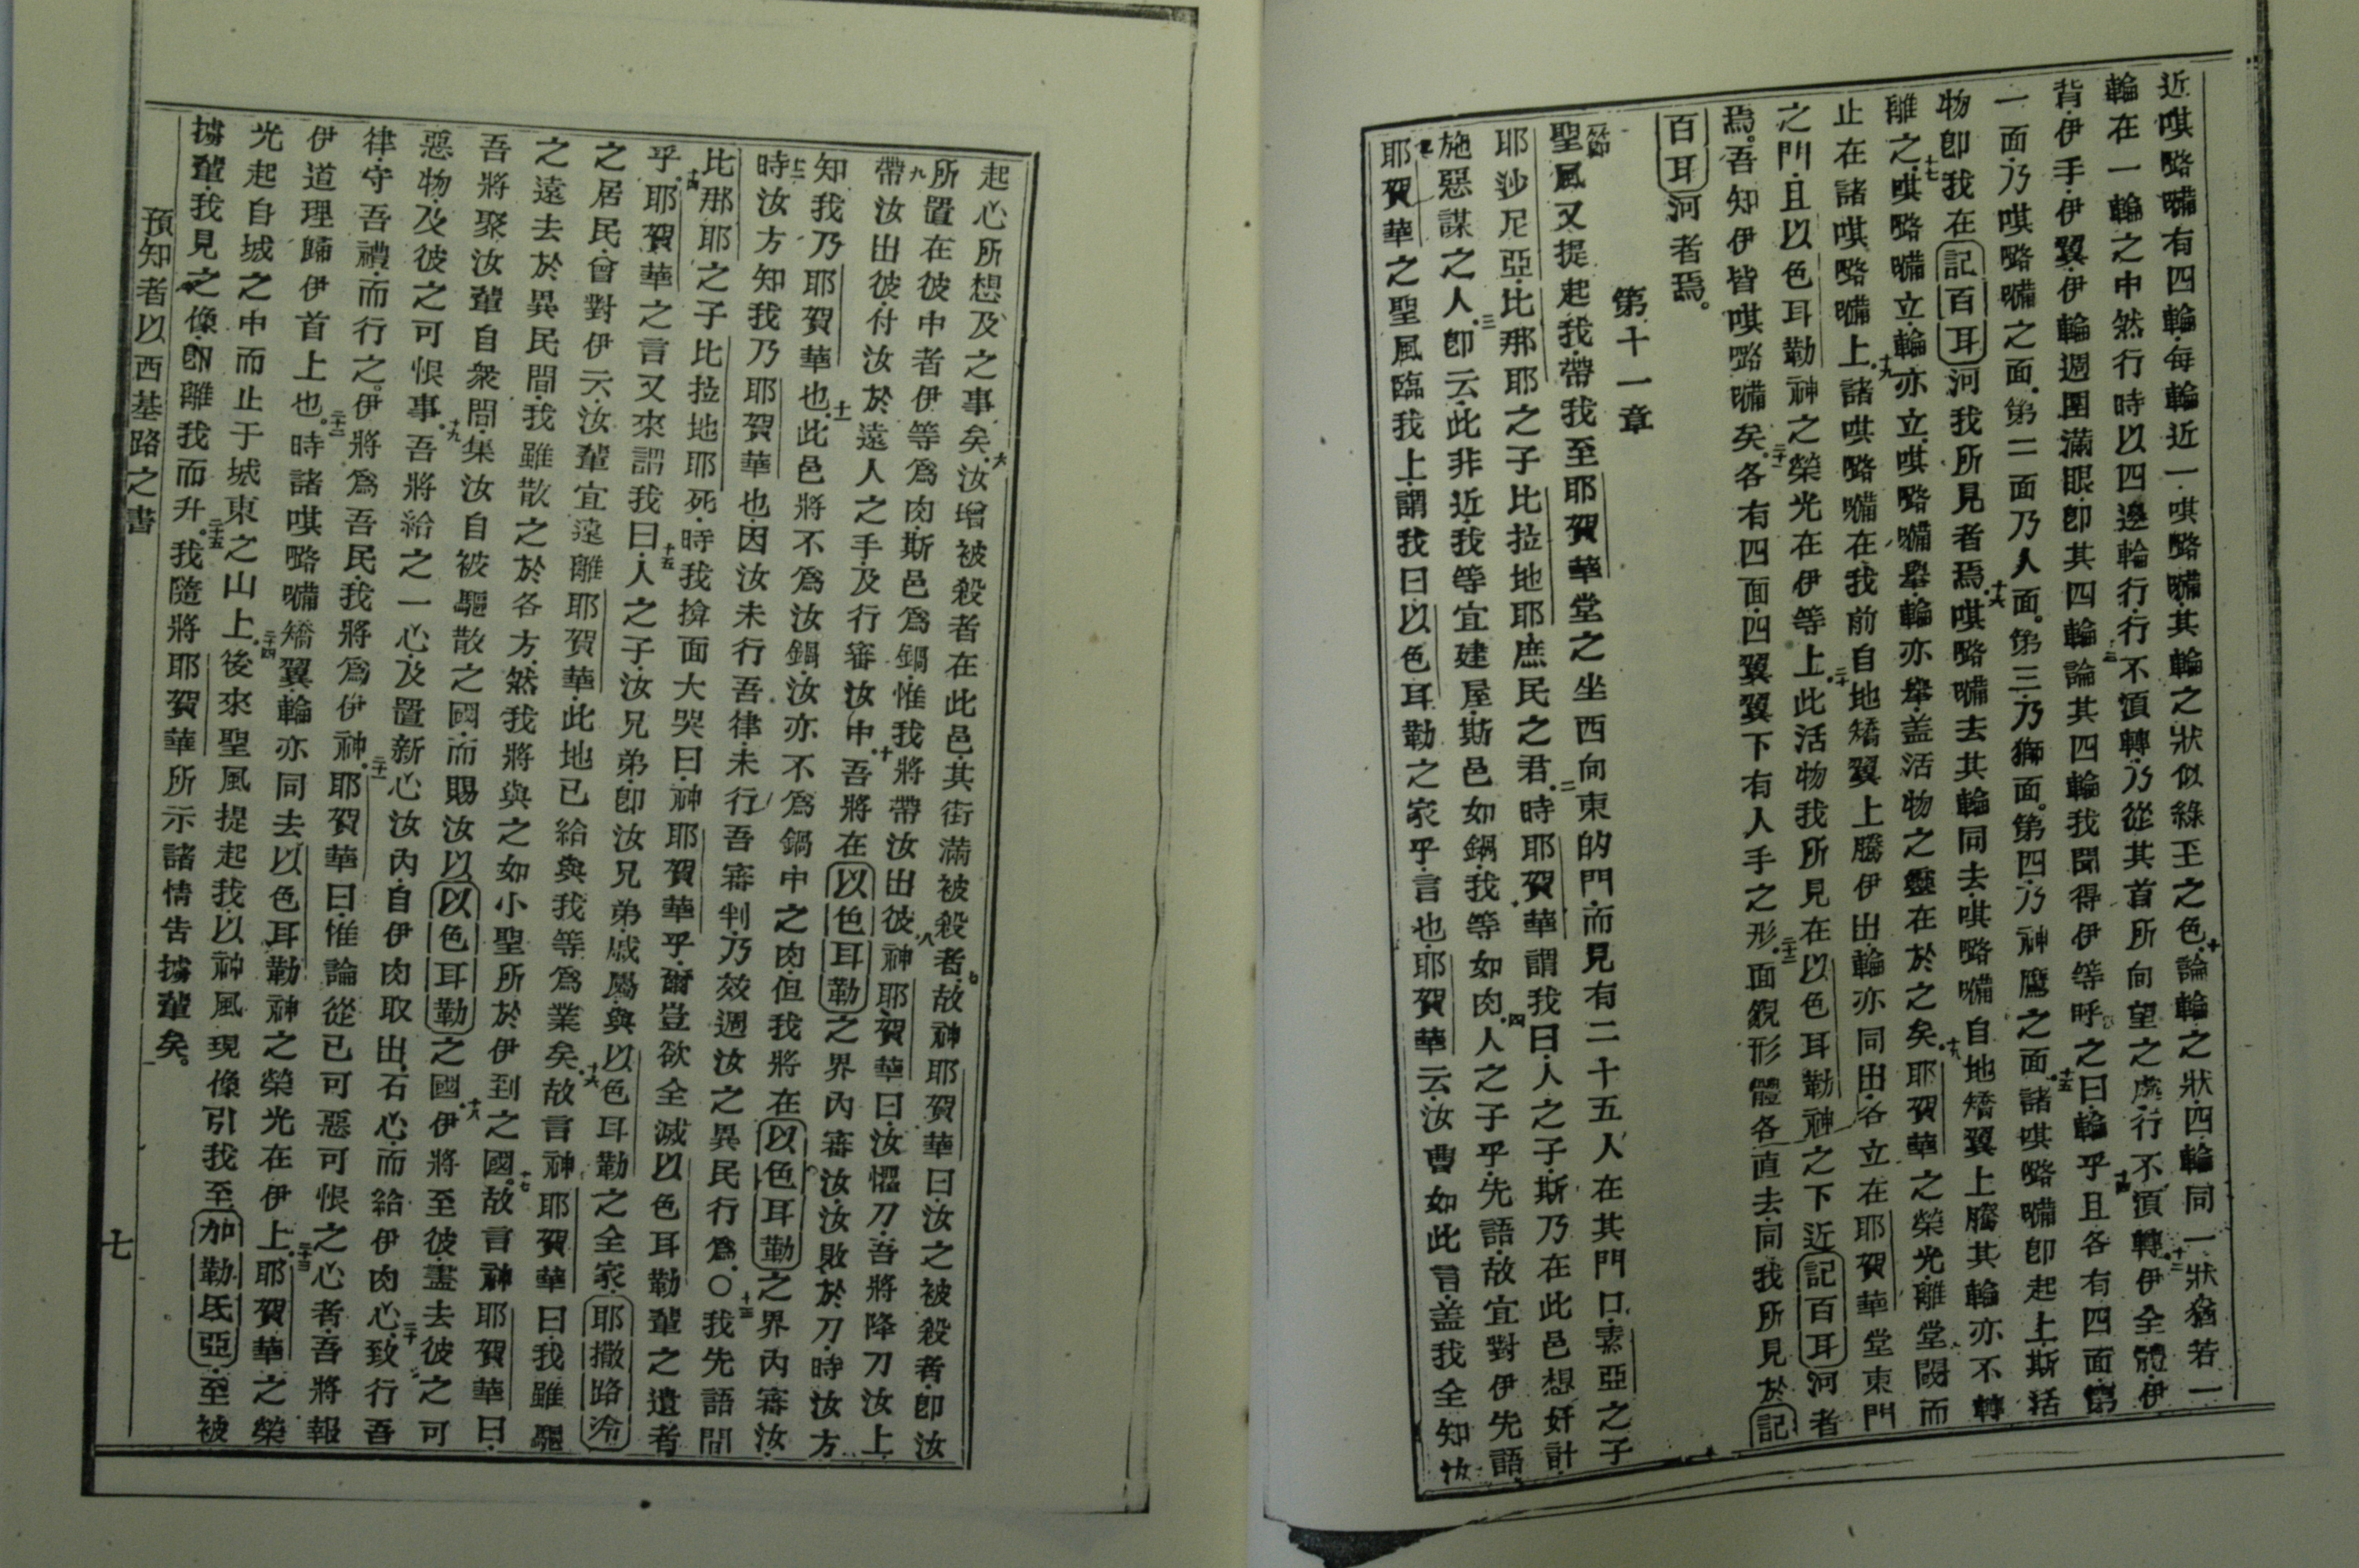 近唭略嚩有四輪每輪近一唭略嚩其輪之狀似綠玉之色十論輪之狀四輪同一狀猶若一
輪在一輪之中然行時以四邊輪行行不須轉乃從其首所向望之處行不須轉十二伊全體伊
背伊手伊翼伊輪週圍滿眼即其四輪論其四輪我聞得伊等呼之曰輪乎十四且各有四面第
一面乃唭略嚩之面第二面乃人面第三乃獅面第四乃神鷹之面十五諸唭略嚩即起上斯活
物即我在記百耳河我所見者焉十六唭略嚩去其輪同去唭略嚩自地矯翼上騰其輪亦不轉
離之十七唭略嚩立輪亦立唭略嚩舉輪亦舉盖活物之靈在於之矣十八耶賀華之榮光離堂閾而
止在諸唭略嚩上十九諸唭略嚩在我前自地矯翼上騰伊出輪亦同出各立在耶賀華堂東門
之門且以色耳勒神之榮光在伊等上二十此活物我所見在以色耳勒神之下近記百耳河者
焉吾知伊皆唭略嚩矣二十一各有四面四翼翼下有人手之形二十二面貌形體各直去同我所見於記
百耳河者焉
第十一章
一節聖風又提起我帶我至耶賀華堂之坐西向東的門而見有二十五人在其門口霫亞之子
耶沙尼亞比那耶之子比拉地耶庶民之君二時耶賀華謂我曰人之子斯乃在此邑想奸計
施惡謀之人三即云此非近我等宜建屋斯邑如鍋我等如肉四人之子乎先語故宜對伊先語
五耶賀華之聖風臨我上謂我曰以色耳勒之家乎言也耶賀華云汝曹如此言盖我全知汝
起心所想及之事矣六汝增被殺者在此邑其街滿被殺者七故神耶賀華曰汝之被殺者即汝
所置在彼中者伊等為肉斯邑為鍋惟我將帶汝出彼八神耶賀華曰汝懼刀吾將降刀汝上
九帶汝出彼付汝於遠人之手及行審汝中十吾將在以色耳勒之界內審汝汝敗於刀時汝方
知我乃耶賀華也十一此邑將不為汝鍋汝亦不為鍋中之肉但我將在以色耳勒之界內審汝
十二時汝方知我乃耶賀華也因汝未行吾律未行吾審判乃效週汝之異民行為〇十三我先語間
比那耶之子比拉地耶死時我揜面大哭曰神耶賀華乎爾豈欲全滅以色耳勒輩之遺者
乎十四耶賀華之言又來謂我曰十五人之子汝兄弟即汝兄弟戚屬與以色耳勒之全家耶撒路冷
之居民曾對伊云汝輩宜遠離耶賀華此地已給與我等為業矣十六故言神耶賀華曰我雖驅
之遠去於異民間我雖散之於各方然我將與之如小聖所於伊到之國十七故言神耶賀華曰
吾將聚汝輩自衆間集汝自被驅散之國而賜汝以以色耳勒之國十八伊將至彼盡去彼之可
惡物及彼之可恨事十九吾將給之一心及置新心汝內自伊肉取出石心而給伊肉心二十致行吾
律守吾禮而行之伊將為吾民我將為伊神二十一耶賀華曰惟論從已可惡可恨之心者吾將報
伊道理歸伊首上也二十二時諸唭略嚩矯翼輪亦同去以色耳勒神之榮光在伊上二十三耶賀華之榮
光起自城之中而止于城東之山上二十四後來聖風提起我以神風現像引我至加勒氐亞至被
擄輩我見之像即離我而升二十五我隨將耶賀華所示諸情告擄輩矣
預知者以西基路之書
七